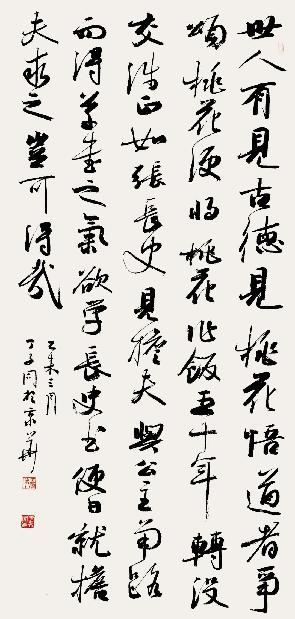 世人有見古德見桃花悟道者爭
頌桃花便將桃花作飯五十年轉沒
交涉正如張長史見擔夫與公主爭路
而得草書之氣欲学長史書便日就擔
夫求之豈可得哉
乙未三月
於京華